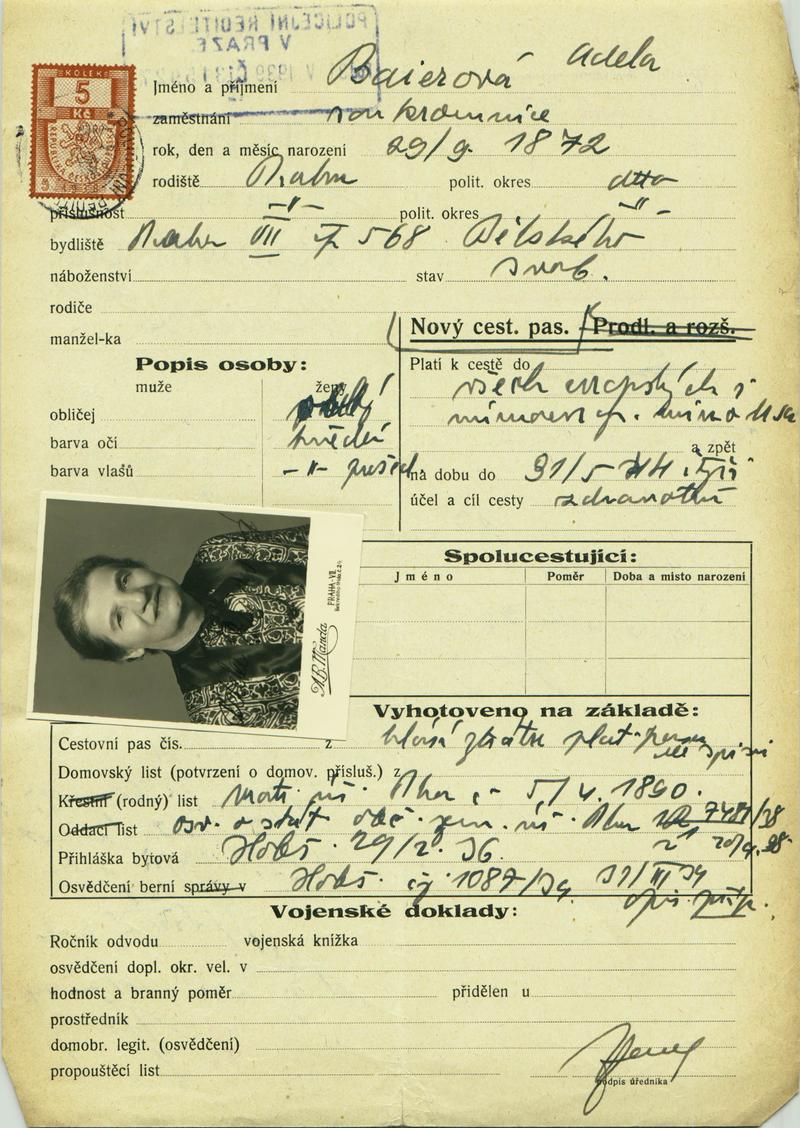 POLICEJNÍ ŘEDITELSTVÍ
V PRAZE
KOLEK
5
Kč
Jméno a příjmení Baierová Adela
zaměstnání soukromnice
rok, den a měsíc narození 29/9. 1872
rodiště Praha polit. okres dtto
příslušnost -"- polit. okres -"-
bydliště Praha VII čp 568 Bělského
náboženství stav svob.
rodiče
manžel-ka
Nový cest. pas. Prodl. a rozš.
Popis osoby:
muže ženy
obličej
barva očí hnědé
barva vlasů -"-
Platí k cestě do
všech evropských i
mimoevrop. mimo
a zpět
na dobu do 31/5
účel a cíl cesty zdravotní
PRAHA-VII.
Spolucestující:
Jméno Poměr Doba a misto narození
Vyhotoveno na základě:
Cestovní pas čís. z hlásí ztrátu
Domovský list (potvrzení o domov. přísluš.) z
Křestní (rodný) list Praha 5/4. 1890.
Oddací list osv. o stát. obč. zem. úř. Praha 7481/38
Přihláška bytová 29/2. 36.
Osvědčení berní správy v čj 1087/39 31/III 39
Vojenské doklady:
Ročník odvodu vojenská knížka
osvědčení dopl. okr. vel. v
hodnost a branný poměr přidělen u
prostředník
domobr. legit. (osvědčení)
propouštěcí list
podpis úředníka